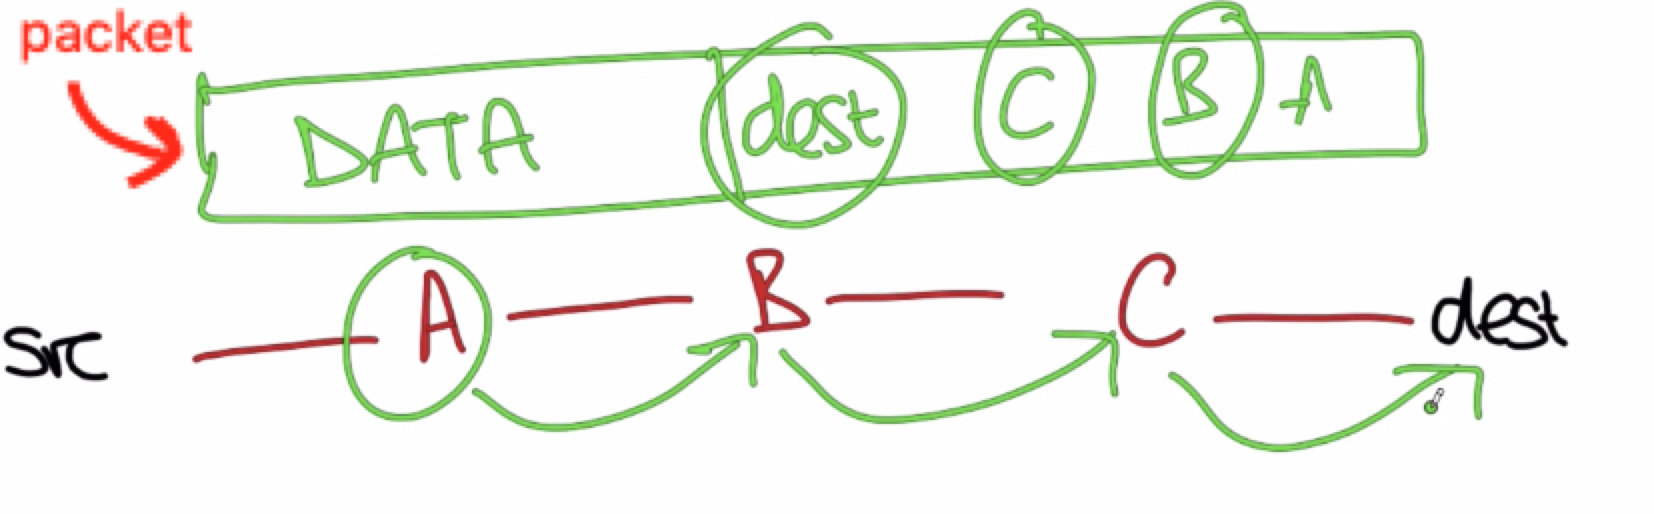 packet
DATA dest C B A
src A B C dest